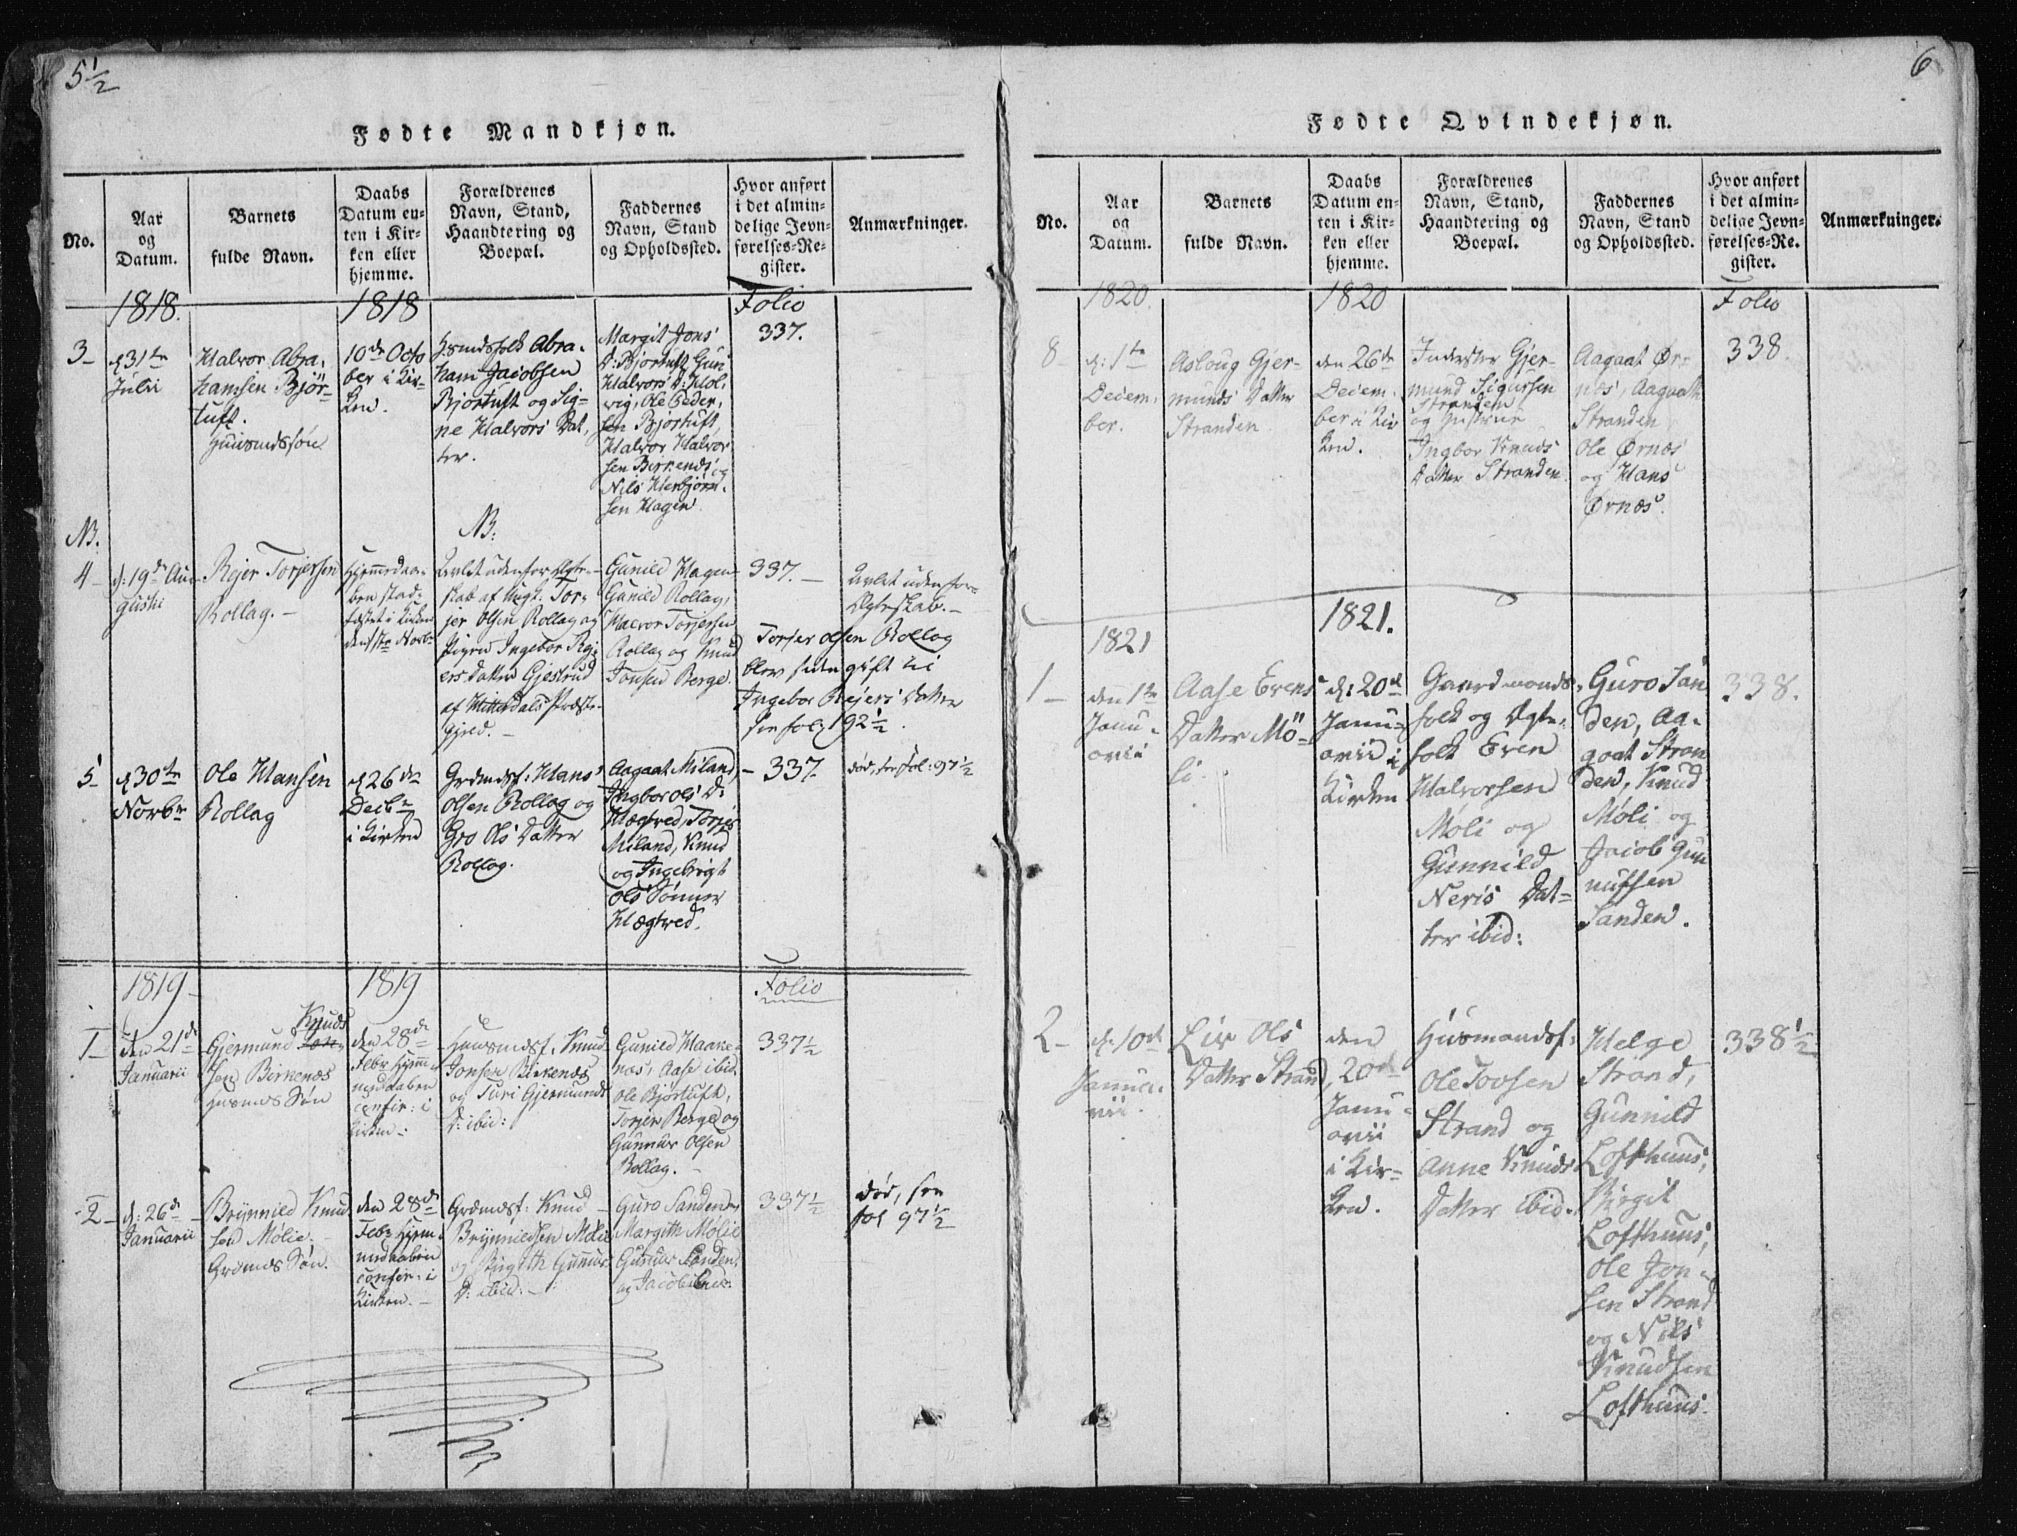 5½
Fødte Mandkjøn.
No.
Aar
og
Datum.
Barnets
fulde Navn.
Daabs
Datum en-
ten i Kir-
ken eller
hjemme.
Forældrenes
Navn, Stand,
Haandtering og
Boepæl.
Faddernes
Navn, Stand
og Opholdssted.
Hvor anført
i det almin-
delige Jevn-
førelses-Re-
gister.
Anmærkninger.
1818.
1818
Folio
3
d 31te
Julii
Halvor Abra-
hamsen Bjør-
tuft.
Huusmdssøn
10de Octo
ber i Kir-
ken.
Huusmdsfolk Abra-
ham Jacobsen
Bjørtuft og Sig-
ne Halvors Dat-
ter.
Margit Jons
D: Bjørtuft, Gun
Halvors D: Hol-
vig, Ole Peder-
sen Bjørtuft,
Halvor Halvor
sen Birkenes og
Nils Herbjørn-
sen Hagen.
337.
NB.
NB:
4
d: 19de Au-
gusti
Rejer Torjersen
Rollag.
Hjemmedaa-
ben stad-
fæstet i Kirken
den 1ste Novb:
Avlet uden for Ægte-
skab af Ungk. Tor-
jer Olsen Rollag og
Pigen Ingebor Rej-
ers Datter Gjestrud
af Hitterdals Præste-
gjeld.
Gunild Hagen
Gunild Rollag,
Halvor Torjersen
Rollag og Knud
Jonsen Berge.
337.
Avlet uden for
Ægteskab.
Torjer Olsen Rollag
blev siden gift til
Ingebor Rejers Datter
see fol: 192½.
5
d 30te
Novbr
Ole Hansen
Rollag
d 26de
Decbr
i Kirken
Grdmdsf: Hans
Olsen Rollag og
Gro Ols Datter
Rollag.
Aagaat Miland,
Ingbor Ols D:
Hægtved, Torjer
Miland, Knud
og Ingebrigt
Ols Sønner
Hægtved.
337.
død, see fol: 97½
1819
1819
Folio
1
den 21de
Januarii
Gjermund Knud-
sen Birkenæs
Huusmds Søn
den 28de
Febr Hjemme
med daaben
confir: i
Kirken
Huusmdsf. Knud
Jonsen Birkenæs
og Turi Gjermunds
D: ibid:
Gunild Haake-
næs, Aase ibid
Ole Bjørtuft,
Torjer Berge og
Gunnar Olsen
Rollag.
337½
2
d: 26de
Januarii
Brynnild Knud
sen Mølie.
Grdmds Søn.
den 28de
Febr Hjem-
meddaaben
confir: i
Kirken.
Grdmdsf: Knud
Brynnildsen Mølie
og Birgith Gunnars
D: ibid:
Guro Sanden,
Margith Mølie
Gunnar Sanden,
og Jacob ibid:
337½
død, see
fol 97½
6
Fødte Qvindekjøn.
No.
Aar
og
Datum.
Barnets
fulde Navn.
Daabs
Datum en-
ten i Kir-
ken eller
hjemme.
Forældrenes
Navn, Stand,
Haandtering og
Boepæl.
Faddernes
Navn, Stand
og Opholdssted.
Hvor anført
i det almin-
delige Jevn-
førelses-Re-
gister.
Anmærkninger.
1820.
1820
Folio
8
d: 1te
Decem-
ber.
Aslaug Gjer-
munds Datter
Stranden
den 26de
Decem-
ber i Kir
ken.
Inderster Gjer-
mund Sigursen
Stranden
og Hustrue
Ingbor Knuds
Datter Stranden.
Aagaat Ør-
næs, Aagaath
Stranden
Ole Ørnæs
og Hans
Ørnæs.
338.
1821.
1821
1
den 1te
Janu-
arii
Aase Evens
Datter Mø-
li.
d: 20de
Janu-
arii i
Kirken
Gaardmands-
folk og Ægte-
folk Even
Halvorsen
Møli og
Gunnild
Neris Dat-
ter ibid:
Guro San
den, Aa-
gaat Stran
den, Knud
Møli og
Jacob Gun
nulfsen
Sanden.
338.
2
d. 10de
Janua-
rii.
Liv Ols
Datter Strand
den
20de
Janu-
arii
i Kir-
ken.
Huusmandsf:
Ole Tovsen
Strand og
Anne Knuds
Datter ibid.
Helge
Strand,
Gunnild
Lofthuus,
Birgit
Lofthuus,
Ole Jon-
sen Strand
og Nils
Knudsen
Lofthuus.
338½